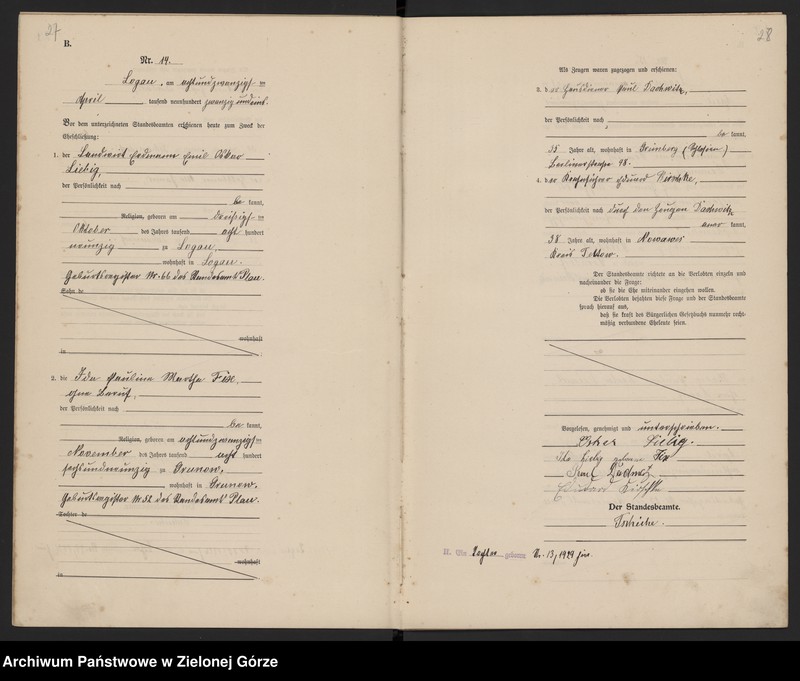 27
B.
Nr. 14.
Logau, am achtundzwanzigsten
April tausend neunhundert zwanzig und eins.
Vor dem unterzeichneten Standesbeamten erschienen heute zum Zweck der
Eheschließung:
1. der Landwirt Erdmann Emil Oskar
Liebig,
der Persönlichkeit nach
be kannt,
Religion, geboren am dreißigsten
Oktober des Jahres tausend acht hundert
neunzig zu Logau,
wohnhaft in Logau.
Geburtsregister Nr. 66 des Standesamts Plau.
Sohn de
wohnhaft
in
2. die Ida Pauline Martha Fex,
ohne Beruf,
der Persönlichkeit nach
be kannt,
Religion, geboren am achtundzwanzigsten
November des Jahres tausend acht hundert
sechsundneunzig zu Grunow,
wohnhaft in Grunow.
Geburtsregister Nr. 52 des Standesamts Plau.
Tochter de
wohnhaft
in
28
Als Zeugen waren zugezogen und erschienen:
3. der Hausdiener Paul Dachwitz,
der Persönlichkeit nach
be kannt,
35 Jahre alt, wohnhaft in Grünberg (Schlesien)
Berlinerstraße 98.
4. der Eduard
der Persönlichkeit nach durch den Zeugen Dachwitz
aner kannt,
38 Jahre alt, wohnhaft in Nowawes
Kreis Teltow.
Der Standesbeamte richtete an die Verlobten einzeln und
nacheinander die Frage:
ob sie die Ehe miteinander eingehen wollen.
Die Verlobten bejahten diese Frage und der Standesbeamte
sprach hierauf aus,
daß sie kraft des Bürgerlichen Gesetzbuchs nunmehr recht-
mäßig verbundene Eheleute seien.
Vorgelesen, genehmigt und unterschrieben.
Oskar Liebig.
Ida Liebig geborene Fex
Paul Dachwitz
Eduard
Der Standesbeamte.
Tschirke.
Tochter geboren Nr. 13/1929
Archiwum Państwowe w Zielonej Górze